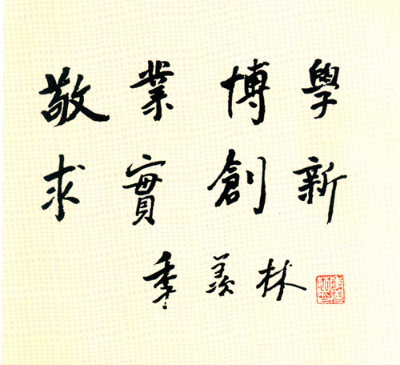 敬業博學
求實創新
季羨林